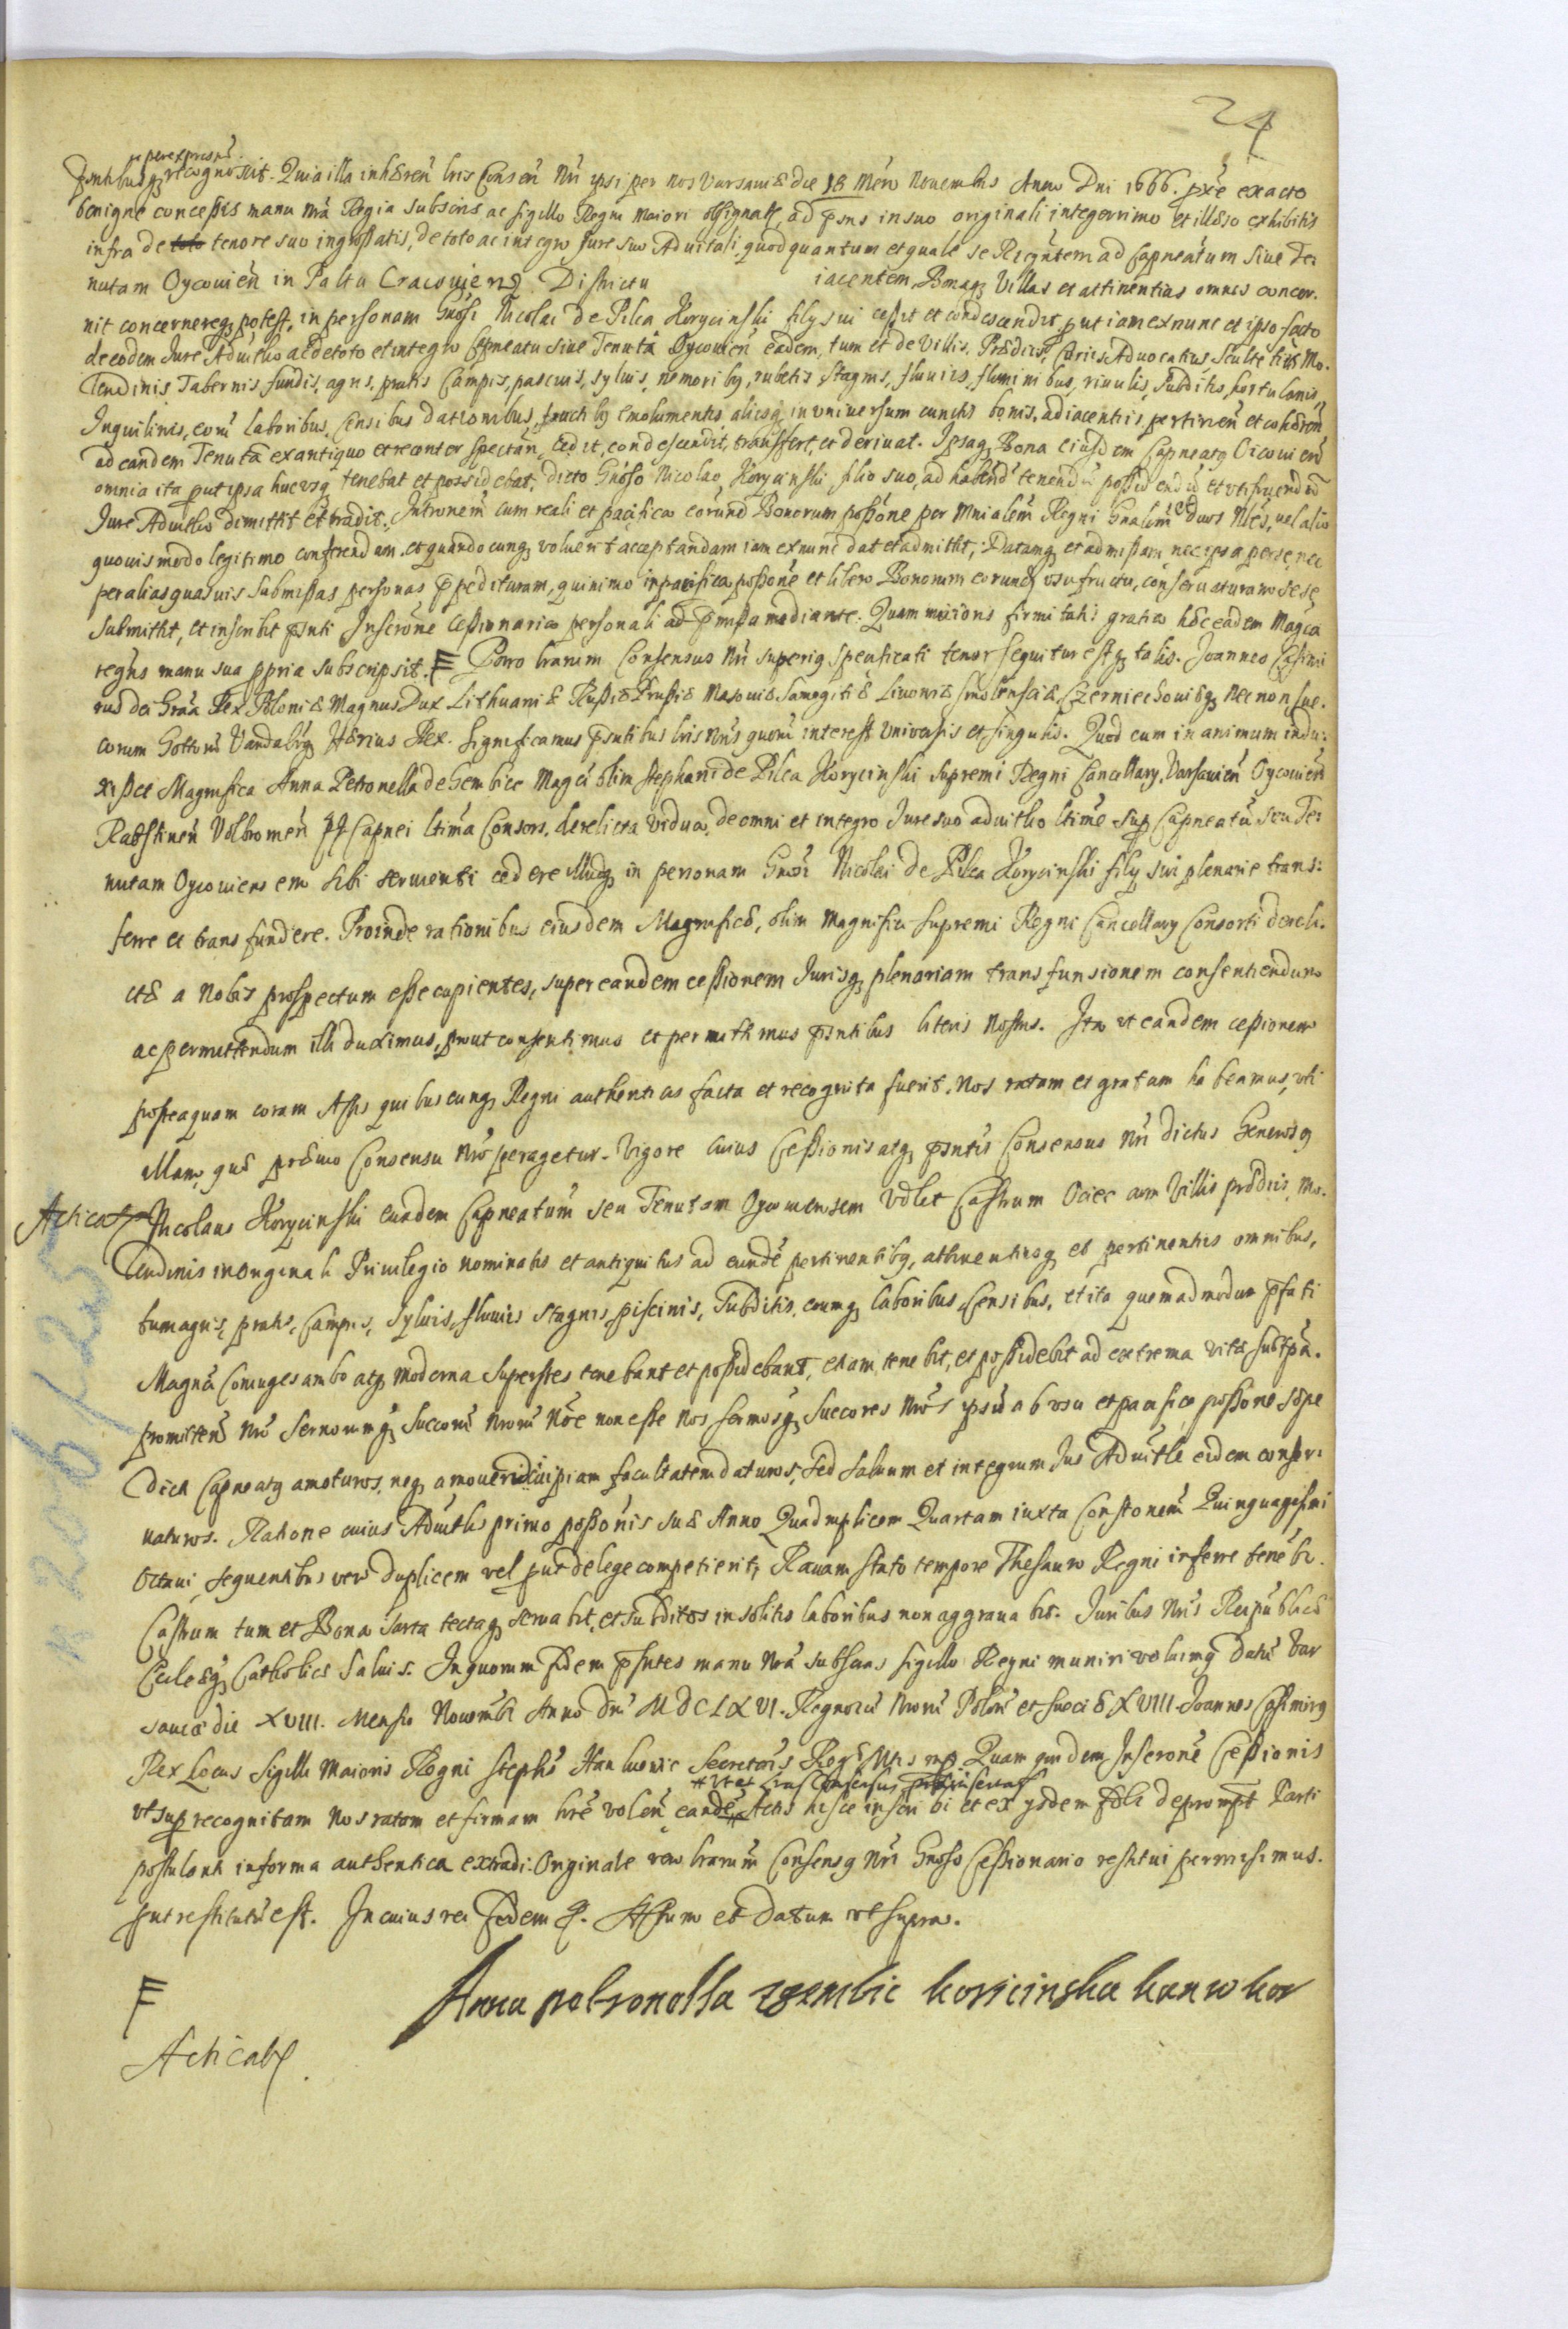 24
se per expressu
pntibusq recognoscit. Quia illa inhæren lris Consen Nri ipsi per nos Varsaviæ die 18 Men Novembris Anno Dni 1666. pxe exacto
benigne concessis manu nra Regia subscris ac sigillo Regni maiori obsignatis, ad psns in suo originali integerrimo et illæso exhibitis
infra de toto tenore suo ingrossatis, de toto ac integro Jure suo Advitali, quod quantum et quale se ad Capneatum sive Te:
nutam Oycovien in Paltu Cracovien Districtu iacentem, Bonaq Villas et attinentias omnes concer:
nit concernereq potest, in personam Gnosi Nicolai de Pilca Korycinski filij sui cessit et condescendit, put iam ex nunc et ipso facto
de eodem Jure Advitlio ac de toto et integro Capneatu sive Tenuta Oycovien eadem, tum et de Villis, Prædiis, Curiis Advocatiis Scultetiis Mo:
lendinis, Tabernis, fundis, agris, pratis Campis, pascuis, sylvis, nemoribq, rubetis, stagnis, fluviis, fluminibus, rivulis, Subditis, hortulanis,
Inquilinis, eoru laboribus, Censibus dationibus, fructibq emolumentis aliisq in universum cunctis bonis, adiacentiis pertinen et cohæren
ad eandem Tenuta ex antiquo et recenter spectan, cedit, condescendit, transfert, et derivat. Ipsaq Bona eiusdem Capneatq Oicovien
omnia ita put ipsa hucusq tenebat et possidebat, dicto Gnoso Nicolao Korycinski filio suo, ad habend tenendu possidendu et utifruendu
Jure Advitlio dimittit et tradit. Intronem cum reali et pacifica eorund Bonorum possone per Mnialem Regni Gnalem et duos Nles, vel alio
quovis modo legitimo conferendam, et quandocunq voluerit acceptandam iam ex nunc dat et admittit, Datamq et admissam nec ipsa per se, nec
per alias quasvis submissas personas ppedituram, quinimo in pacifica possone et libero Bonorum eorund usufructu, conservaturam sese
submittit, et inscribit psnti Inscrone Cessionaria personali ad pmissa mediante. Quam maioris firmitatis gratia hæc eadem Magca
regns manu sua ppria subscripsit. F Porro lrarum Consensus Nri superiq specificati tenor sequitur estq talis. Joannes Casimi
rus dei Graa Rex Poloniæ Magnus Dux Lithuaniæ Russiæ Prussiæ Masoviæ Samogitiæ Livoniæ Smolensciæ Czerniechoviæq necnon Sue:
corum Gottoru Vandaloruq Hærius Rex. Significamus psntibus lris nris quoru interest universis et singulis. Quod cum in animum indu:
xisset Magnifica Anna Petronella de Gembice Magci olim Stephani de Pilca Korycinski Supremi Regni Cancellarij, Varsavien Oycovien
Wolbromen Capnei ltima Consors, derelicta vidua, de omni et integro Jure suo advitlio ltime sup Capneatu seu Te:
nutam Oycoviensem sibi servienti cedere illudq in personam Gnosi Nicolai de Pilca Korycinski filij sui plenarie trans:
ferre et transfundere. Proinde rationibus eiusdem Magnificæ, olim Magnifici Supremi Regni Cancellarij Consorti dereli:
ctæ a Nobis prospectum esse cupientes, super eandem cessionem Jurisq plenariam transfunsionem consentiendum
ac permittendum illi duximus, prout consentimus et permittimus psntibus literis Nostris. Ita ut eandem cessionem
posteaquam coram Actis quibuscunq Regni authenticis facta et recognita fuerit, Nos ratam et gratam habeamus, uti
illam, quæ prævio Consensu Nro peragetur. Vigore cuius Cessionis atq psntis Consensus Nri dictus Generosq
Acticat
Nicolaus Korycinski eundem Capneatum seu Tenutam Oycoviensem Vdlet Castrum Ociec cum Villis prædiis, Mo:
lendinis in originali Privilegio nominatis et antiquitus ad eunde pertinentibq, attinentiisq et pertinentiis omnibus,
tum agris, pratis, Campis, Sylvis, fluviis stagnis, piscinis, Subditis, eorumq laboribus, Censibus, et ita quemadmodum pfati
Magnci Coniuges ambo atq moderna superstes tenebant et possidebant, etiam tenebit, et possidebit ad extrema vitæ suæ tpa.
promitten Nro Sernorumq Succoru nroru Noe non esse Nos Sernosq Succores Nros ipsu ab usu et pacifica possone sæpe
dicti Capneatq amoturos, neq amovendi cuipiam facultatem daturos, sed salvum et integrum Jus Advitle eidem conser:
vaturos. Ratione cuius Advitlis primo possonis suæ Anno Quadruplicem Quartam iuxta Constonem Quinquagesimi
Octavi, sequentibus vero duplicem vel put de lege competierit, Ravam stato tempore Thesauro Regni inferre tenebr.
Castrum tum et Bona sarta tectaq servabit, et subditos insolitis laboribus non aggravabit. Juribus Nris Reipublicæ
Ecclesiæq Catholicæ salvis. In quorum fidem psntes manu Nra subscras sigillo Regni muniri voluimq Datu Var
saviæ die XVIII. Mensis Novembr Anno Dni MDCLXVI. Regnoru Nroru Polon et Sueciæ XVIII. Joannes Casimirq
Rex Locus Sigilli Maioris Regni Steph Hankiewic Secretarius Reg Mtis mp Quam quidem Inscrone Cessionis
ut sup recognitam Nos ratam et firmam hre volen eande Actis hisce inscribi et ex ijsdem fidle deprompt Parti
postulanti in forma authentica extradi. Originale vero lrarum Consensq Nri Gnoso Cessionario restitui permisimus.
put restitutu est. In cuius rei fidem q. Actum et Datum ut supra.
F
Anna petronella zgembic koricinska kan w kor
Acticat